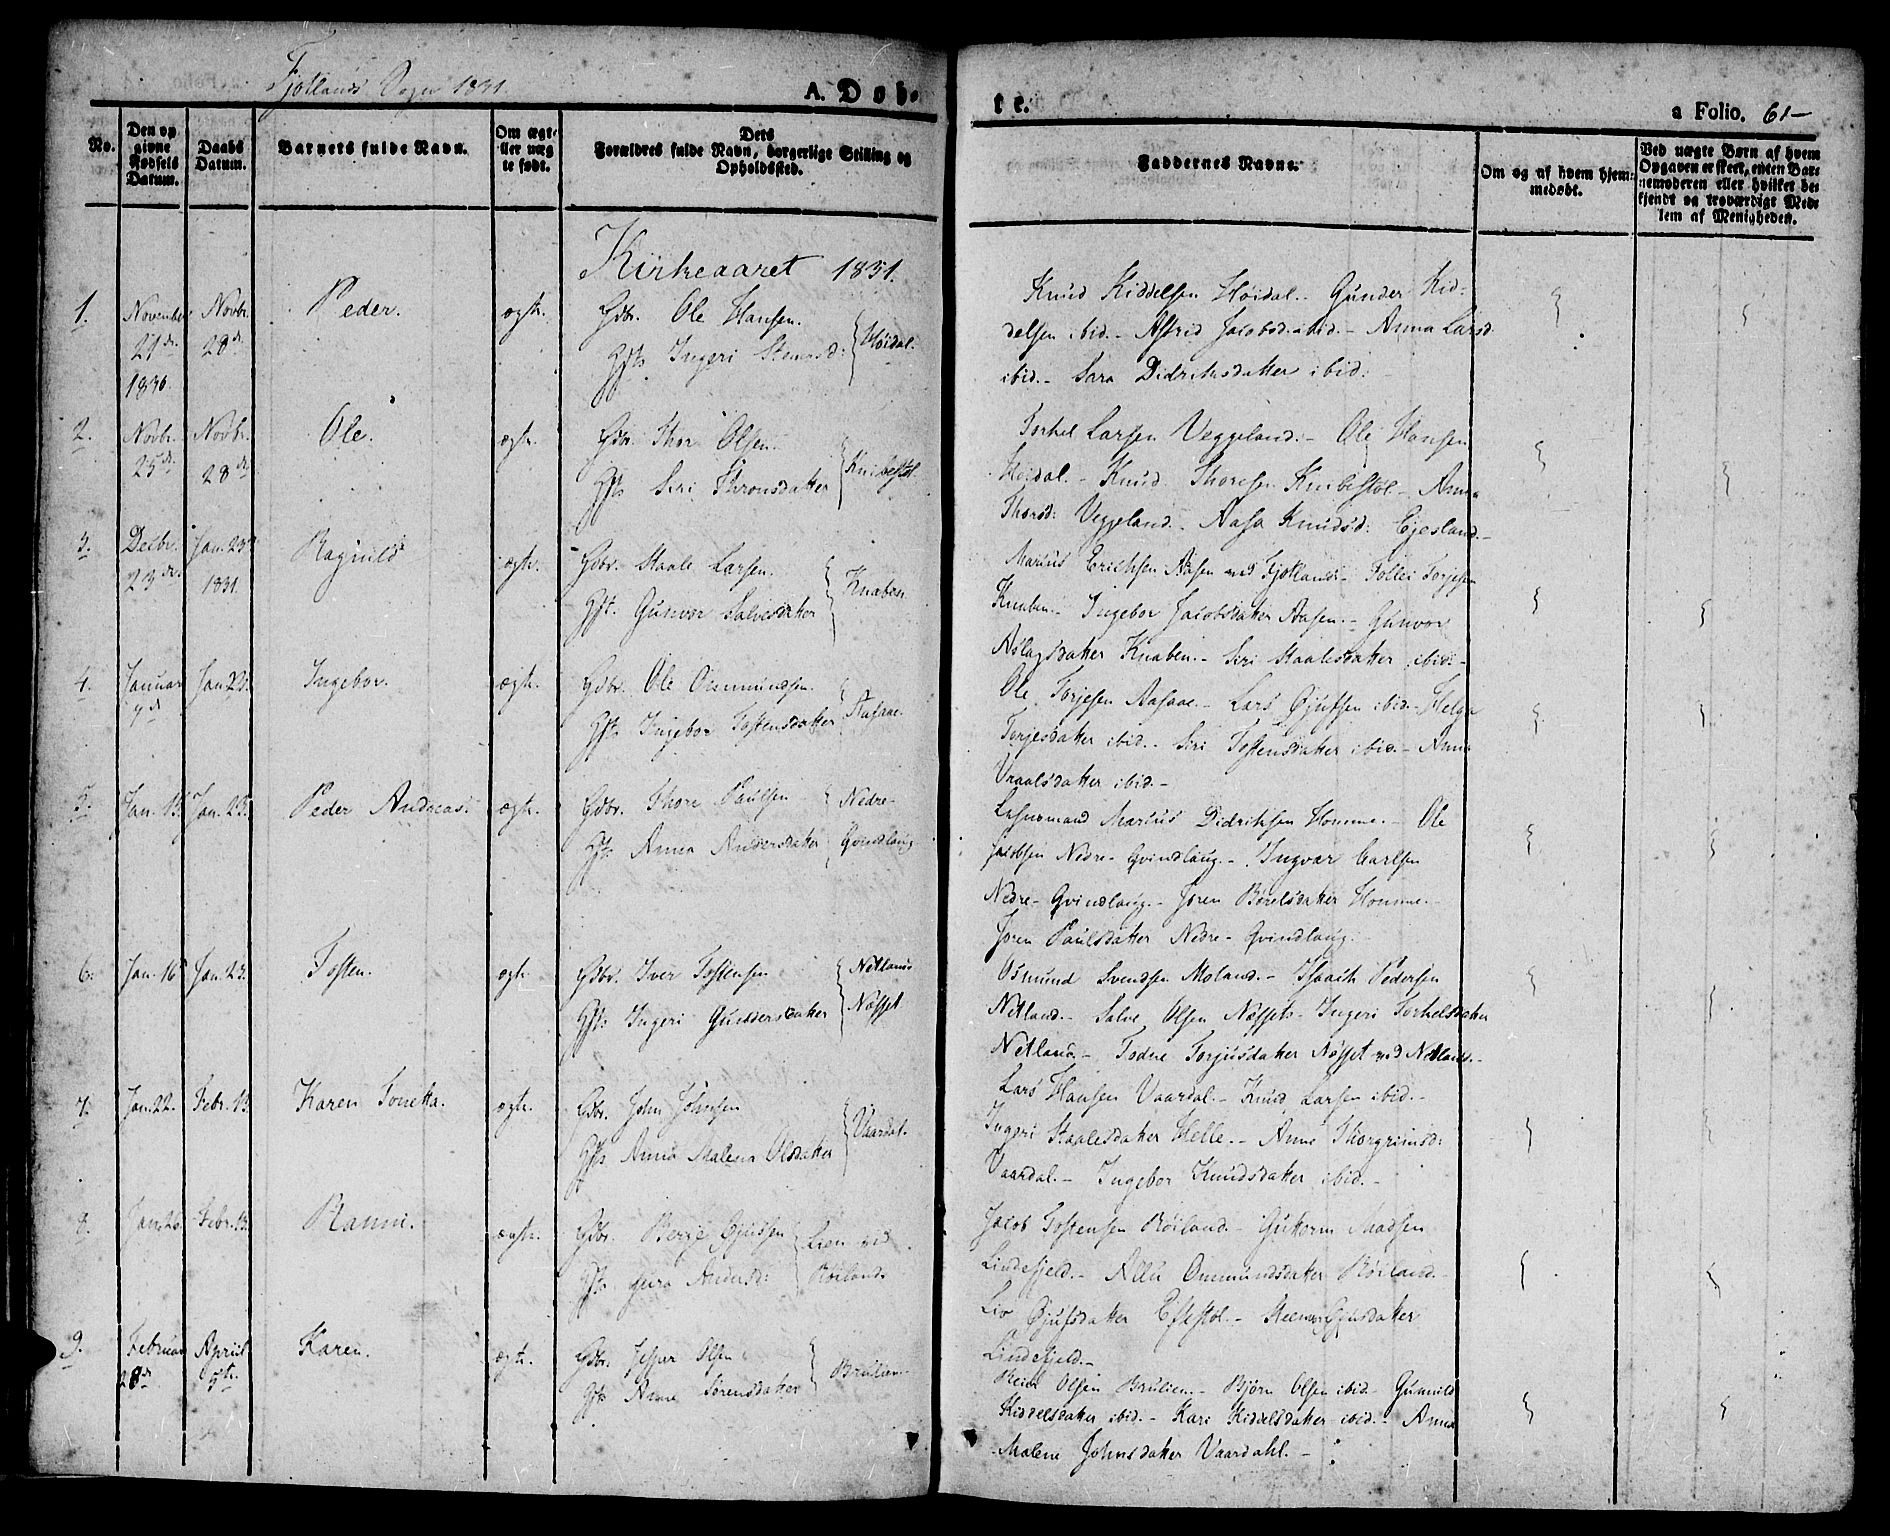 Fjotlands Sogn 1831.
A. Døb-
te.
a Folio. 61-
No.
Den op
givne
Fødsels
Datum.
Daabs
Datum.
Barnets fulde Navn.
Om ægt-
eller uæg
te født.
Dets
Forældres fulde Navn, borgerlige Stilling og
Opholdssted.
Faddernes Navne.
Om og af hvem hjem-
medøbt.
Ved uægte Børn af hvem
Opgaven er skeet, enten Bar-
nemoderen eller hvilket be-
kjendt og troværdigt Med-
lem af Menigheden.
Kirkeaaret 1831.
1. November 27de 1830. Novbr. 28de Peder. ægte. Gdbr. Ole Hansen.
Gft. Ingeri Stensd: Høidal.
Knud Kiddelsen Høidal.- Gunder Kid-
delsen ibid.- Astrid Jacobsd. ibid.- Anna Larsd.
ibid.- Sara Didriksdatter ibid.
2. Novbr. 25de Novbr. 28de Ole. ægte. Gdbr. Thor Olsen.
Gft. Siri Thronsdatter Knibestøl.
Torkel Larsen Veggeland.- Ole Hansen
Høidal.- Knud Thoresen Knibestøl.- Anna
Thorsd: Veggeland.- Aasa Knudsd: Egesland.-
3. Decbr. 23de Jan. 23de 1831. Ragnild ægte. Gdbr. Staale Larsen.
Gft. Gunvor Salvesdatter Knaben.
Marius Erichsen Aasen ved Fjotland.- Tollei Torjesen
Knaben.- Ingebor Jacobsdatter Aasen.- Gunvor
Aslagsdatter Knaben.- Siri Staalesdatter ibid.-
4. Januar Jan. 23. Ingebor. ægte. Gdbr. Ole Ommundsen.
Gft. Ingebor Tostensdatter Aasaae.
Ole Torjesen Aasaae.- Lars Gjufsen ibid.- Helga
Torjesdatter ibid.- Siri Tostensdatter ibid.- Anna
Vraalsdatter ibid.-
5. Jan. 13. Jan. 23. Peder Andreas. ægte. Gdbr. Thore Paulsen Nedre-
Gft. Anna Andersdatter Qvindlaug
Lehnsmand Marius Didriksen Homme.- Ole
Jacobsen Nedre-Qvindlaug.- Ingvar Carlsen
Nedre-Qvindlaug.- Joren Børelsdatter Homme.-
Joren Paulsdatter Nedre-Qvindlaug.
6. Jan. 16 Jan. 23. Tosten. ægte. Gdbr. Iver Tostensen Netlands
Gft. Ingeri Gundersdatter Næsset
Osmund Svendsen Moland.- Isaach Pedersen
Netland.- Salve Olsen Næsset.- Ingeri Torkelsdatter
Netland.- Todne Torjusdatter Næsset ved Netland.-
7. Jan. 22. Febr. 13. Karen Tonetta. ægte. Gdbr. John Johnsen
Gft. Anna Malena Olsdatter Vaardal.
Lars Hansen Vaardal.- Knud Larsen ibid.-
Ingeri Staalesdatter Helle.- Anne Thorgrimsd:
Vaardal.- Ingebor Knudsdatter ibid.-
8. Jan. 26. Febr. 13. Ranni. ægte. Gdbr. Berge Gjufsen Lien ved
Gft. Andersd: Røiland
Jacob Tostensen Røiland.- Guttorm Madsen
Lindefjeld.- Ommundsdatter Røiland.-
Liv Gjufsdatter Efestøl.-
Lindefjeld.-
9. Februar 28de April 5te Karen. ægte. Gdbr. Jesper Olsen
Gft. Anne Sørensdatter Brulien.
Reier Olsen Brulien.- Bjørn Olsen ibid.- Gunnild
Kiddelsdatter ibid.- Kari Kiddelsdatter ibid.- Anna
Malene Johnsdatter Vaardahl.-